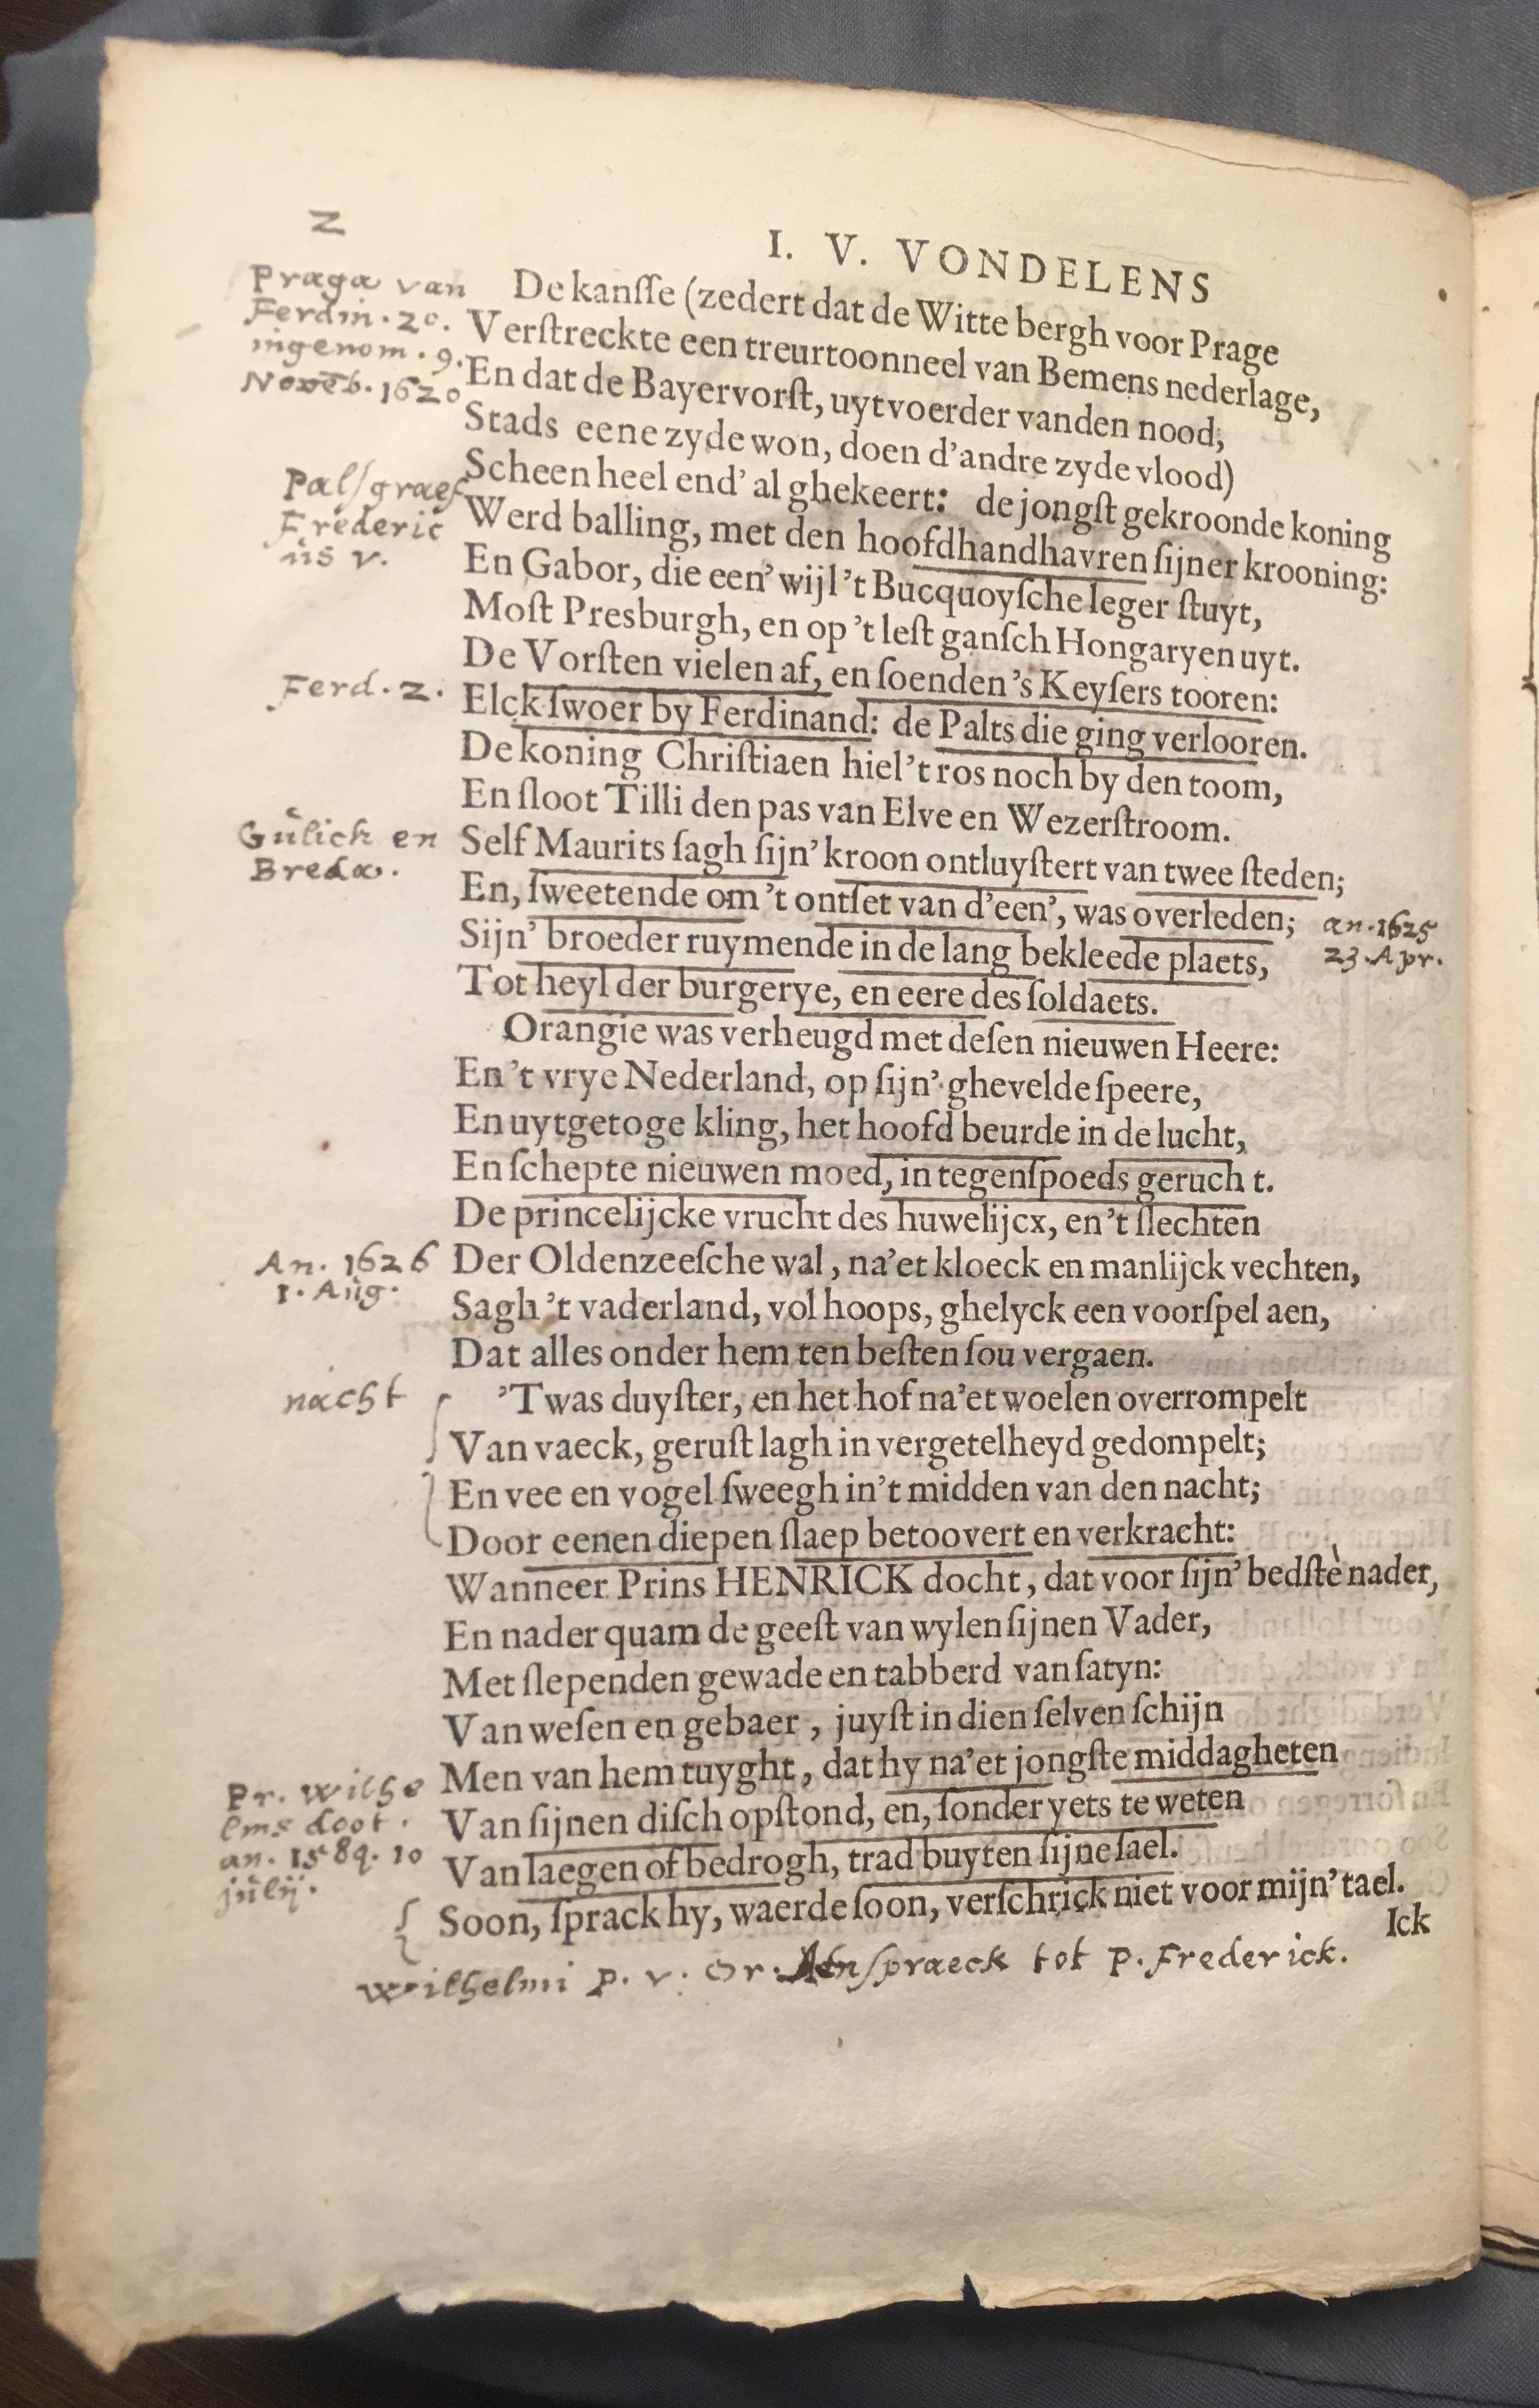 2
I. V. VONDELENS
Praga van
Ferdin. 20.
ingenom. 9.
Novēb. 1620
De kansſe (zedert dat de Witte bergh voor Prage
Verſtreckte een treurtoonneel van Bemens nederlage,
En dat de Bayervorſt, uytvoerder vanden nood,
Stads eene zyde won, doen d'andre zyde vlood)
Scheen heel end' al ghekeert: de jongſt gekroonde koning
Palſgraef
Frederic
us v.
Werd balling, met den hoofdhandhavren ſijner krooning:
En Gabor, die een' wijl 't Bucquoyſche leger ſtuyt,
Moſt Presburgh, en op 't leſt ganſch Hongaryen uyt.
De Vorſten vielen af, en ſoenden 's Keyſers tooren:
Ferd. 2.
Elck ſwoer by Ferdinand: de Palts die ging verlooren.
De koning Chriſtiaen hiel 't ros noch by den toom,
En ſloot Tilli den pas van Elve en Wezerſtroom.
Gulich en
Breda.
Self Maurits ſagh ſijn' kroon ontluyſtert van twee ſteden;
En, ſweetende om 't ontſet van d'een', was overleden;
an. 1625
23. Apr.
Sijn' broeder ruymende in de lang bekleede plaets,
Tot heyl der burgerye, en eere des ſoldaets.
Orangie was verheugd met deſen nieuwen Heere:
En 't vrye Nederland, op ſijn' ghevelde ſpeere,
En uytgetoge kling, het hoofd beurde in de lucht,
En ſchepte nieuwen moed, in tegenſpoeds geruch t.
De princelijcke vrucht des huwelijcx, en 't ſlechten
An. 1626
1. Aug.
Der Oldenzeeſche wal, na'et kloeck en manlijck vechten,
Sagh 't vaderland, vol hoops, ghelyck een voorſpel aen,
Dat alles onder hem ten beſten ſou vergaen.
nacht
'Twas duyſter, en het hof na'et woelen overrompelt
Van vaeck, geruſt lagh in vergetelheyd gedompelt;
En vee en vogel ſweegh in 't midden van den nacht;
Door eenen diepen ſlaep betoovert en verkracht:
Wanneer Prins HENRICK docht, dat voor ſijn' bedſtè nader,
En nader quam de geeſt van wylen ſijnen Vader,
Met ſlependen gewade en tabberd van ſatyn:
Van weſen en gebaer, juyſt in dien ſelven ſchijn
Men van hem tuyght, dat hy na'et jongſte middagheten
Pr. Wilhe
lms doot.
an. 1584. 10
julij.
Van ſijnen diſch opſtond, en, ſonder yets te weten
Van laegen of bedrogh, trad buyten ſijne ſael.
Soon, ſprack hy, waerde ſoon, verſchrick niet voor mijn' tael.
Ick
Wilhelmi P. v. Or. Aenſpraeck tot P. Frederick.